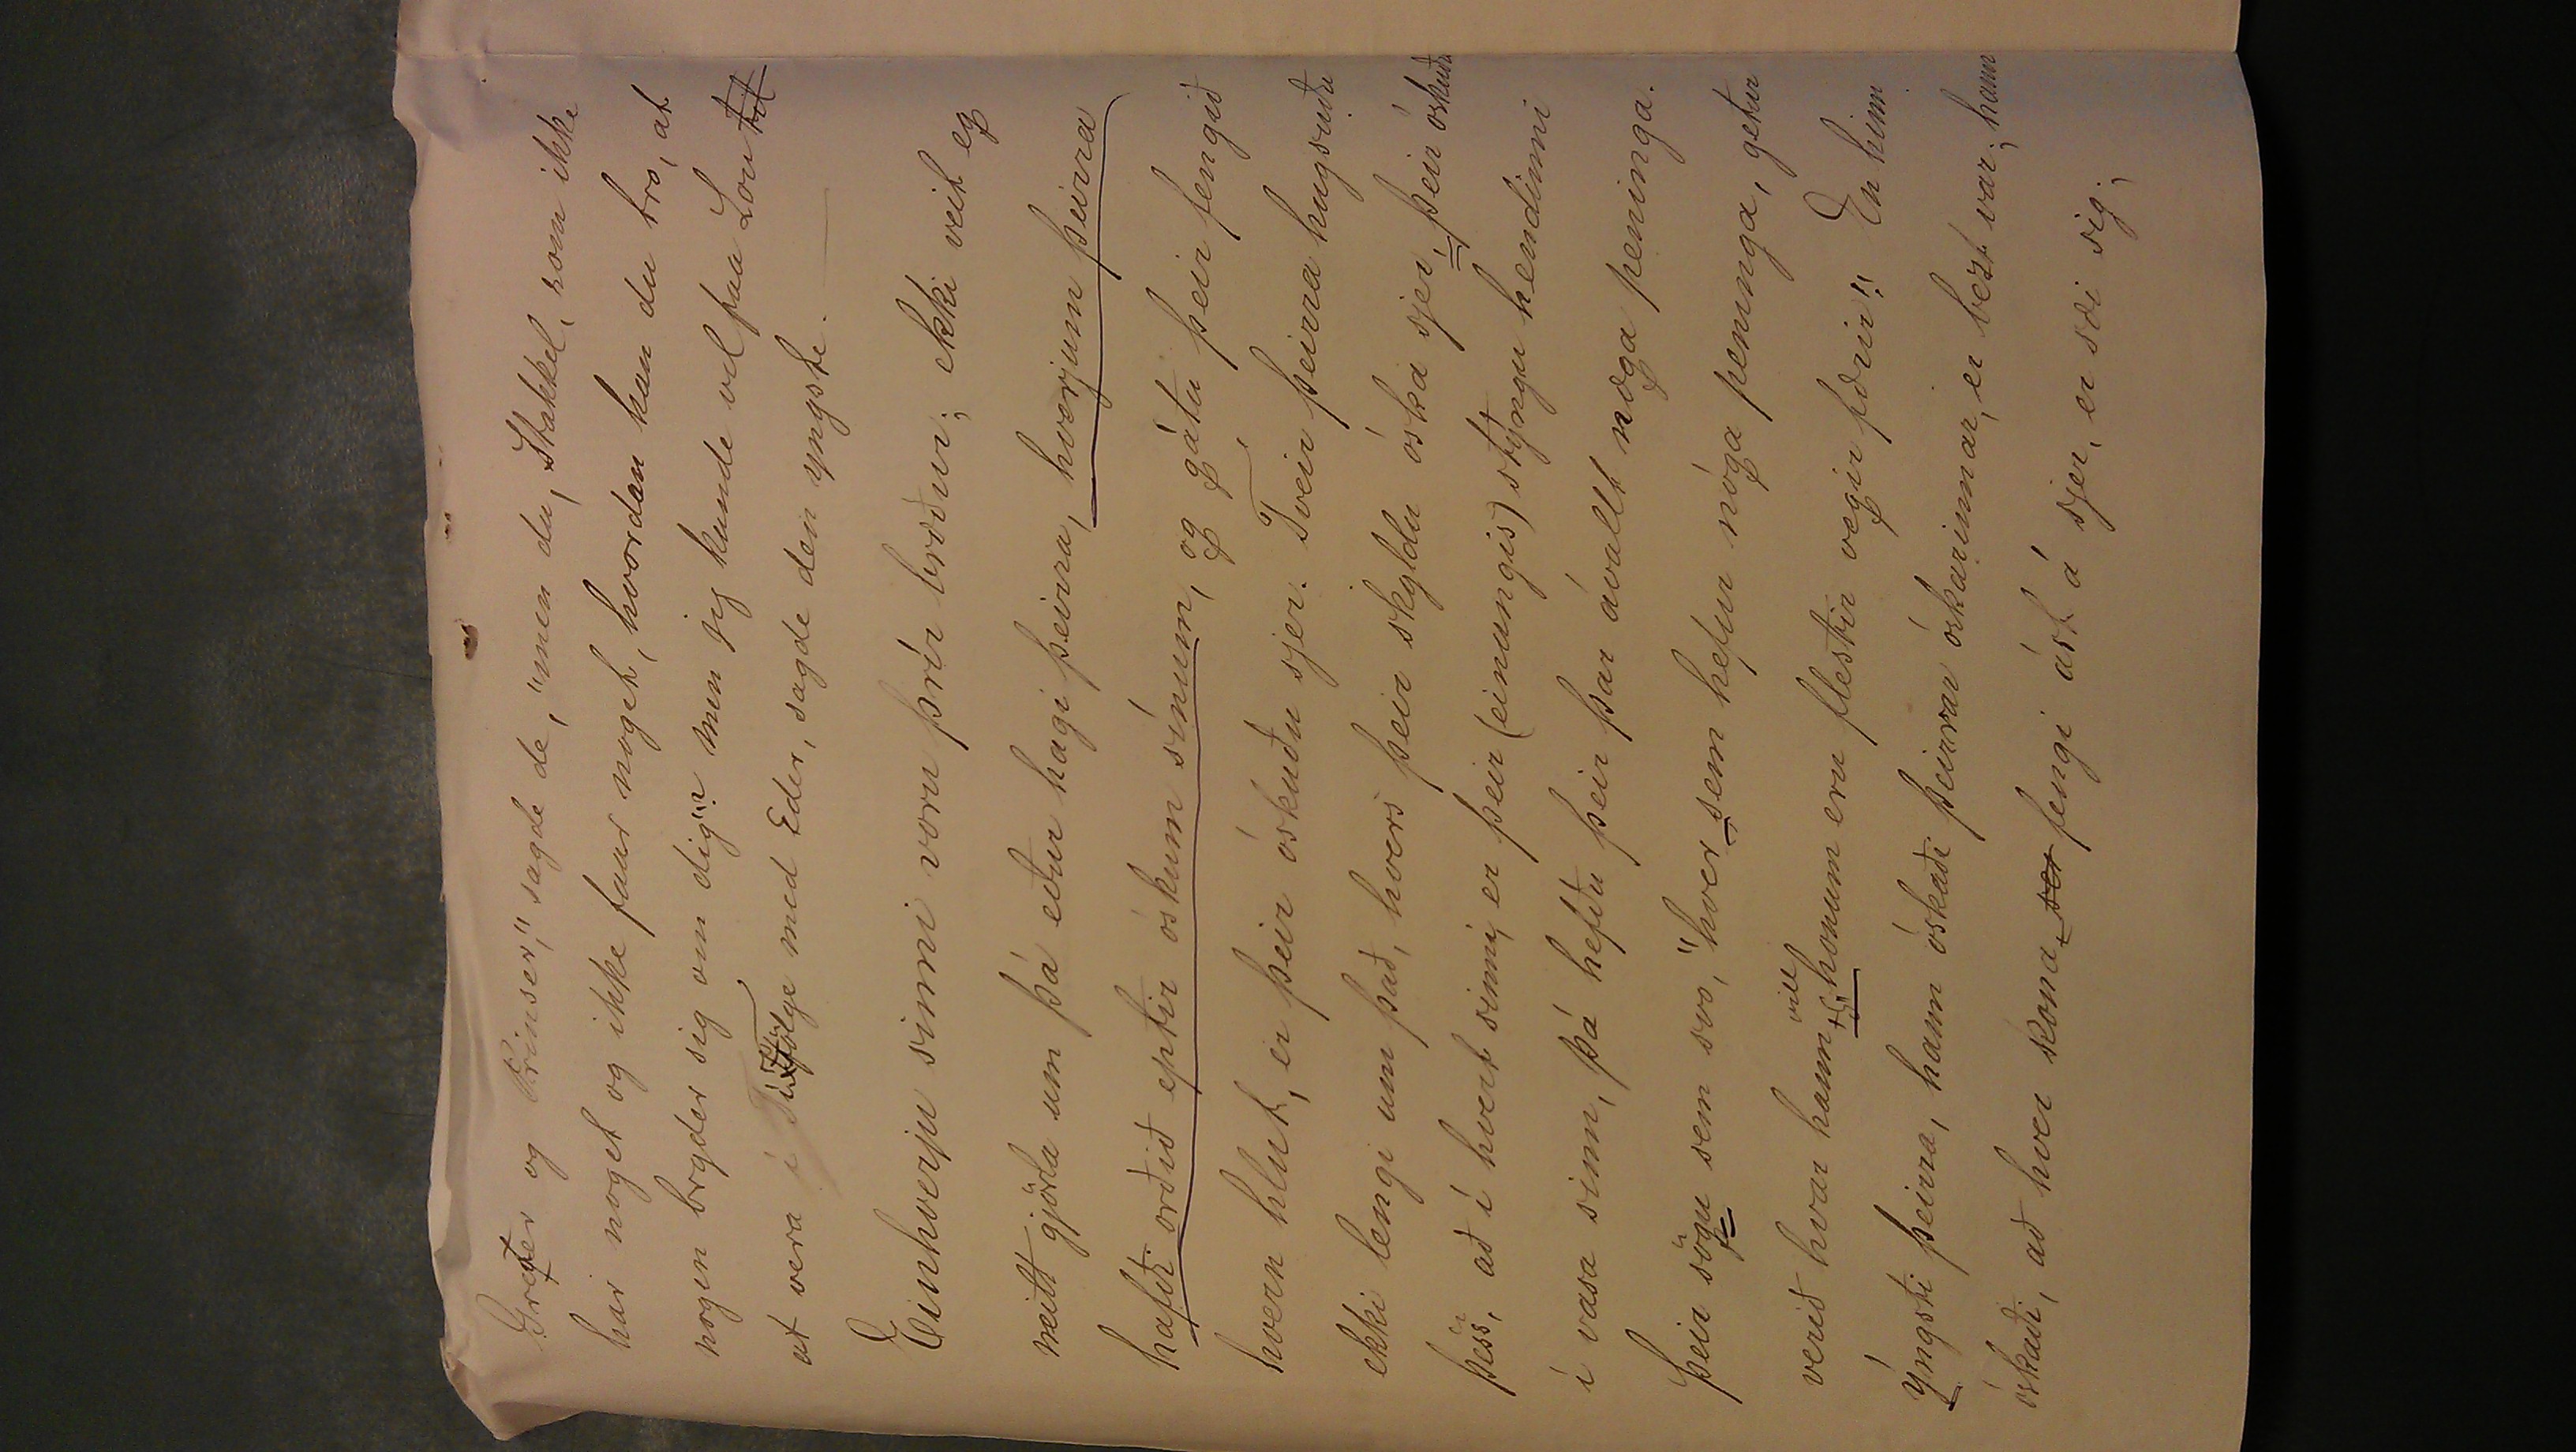 Grefer og Prinser," sagde de, "men du, Stakkel, som ikke
har noget og ikke faar noget, hvordan kan du tro, at
nogen bryder sig om dig"? men jeg kunde vel faa Lov til
at vera i Følge med Eder, sagde den yngste.
Einhverju sinni voru þrír bræður; ekki veit eg
neitt gjörla um þá eður hagi þeirra, hverjum þeirra
hafði orðið eptir óskum sínum, og gátu þeir fengið
hvern hlut, er þeir óskuðu sjer. Tveir þeirra hugsuðu
ekki lengi um það, hvers þeir skyldu óska sjer, þeir óskuðu
þess, að í hvert sinni, er þeir (einungis) stýngu hendinni
í vasa sinn, þá hefðu þeir þar ávallt nóga peninga.
þeir sögu sem svo, "hver sem hefur nóga peninga, getur
verið hvar hann vill honum eru flestir vegir færir". En hinn
ýngsti þeirra, hann óskaði þeirrar óskarinnar, er bezt var; hann
óskaði, að hver kona ser fengi ást á sjer, er sæi sig,